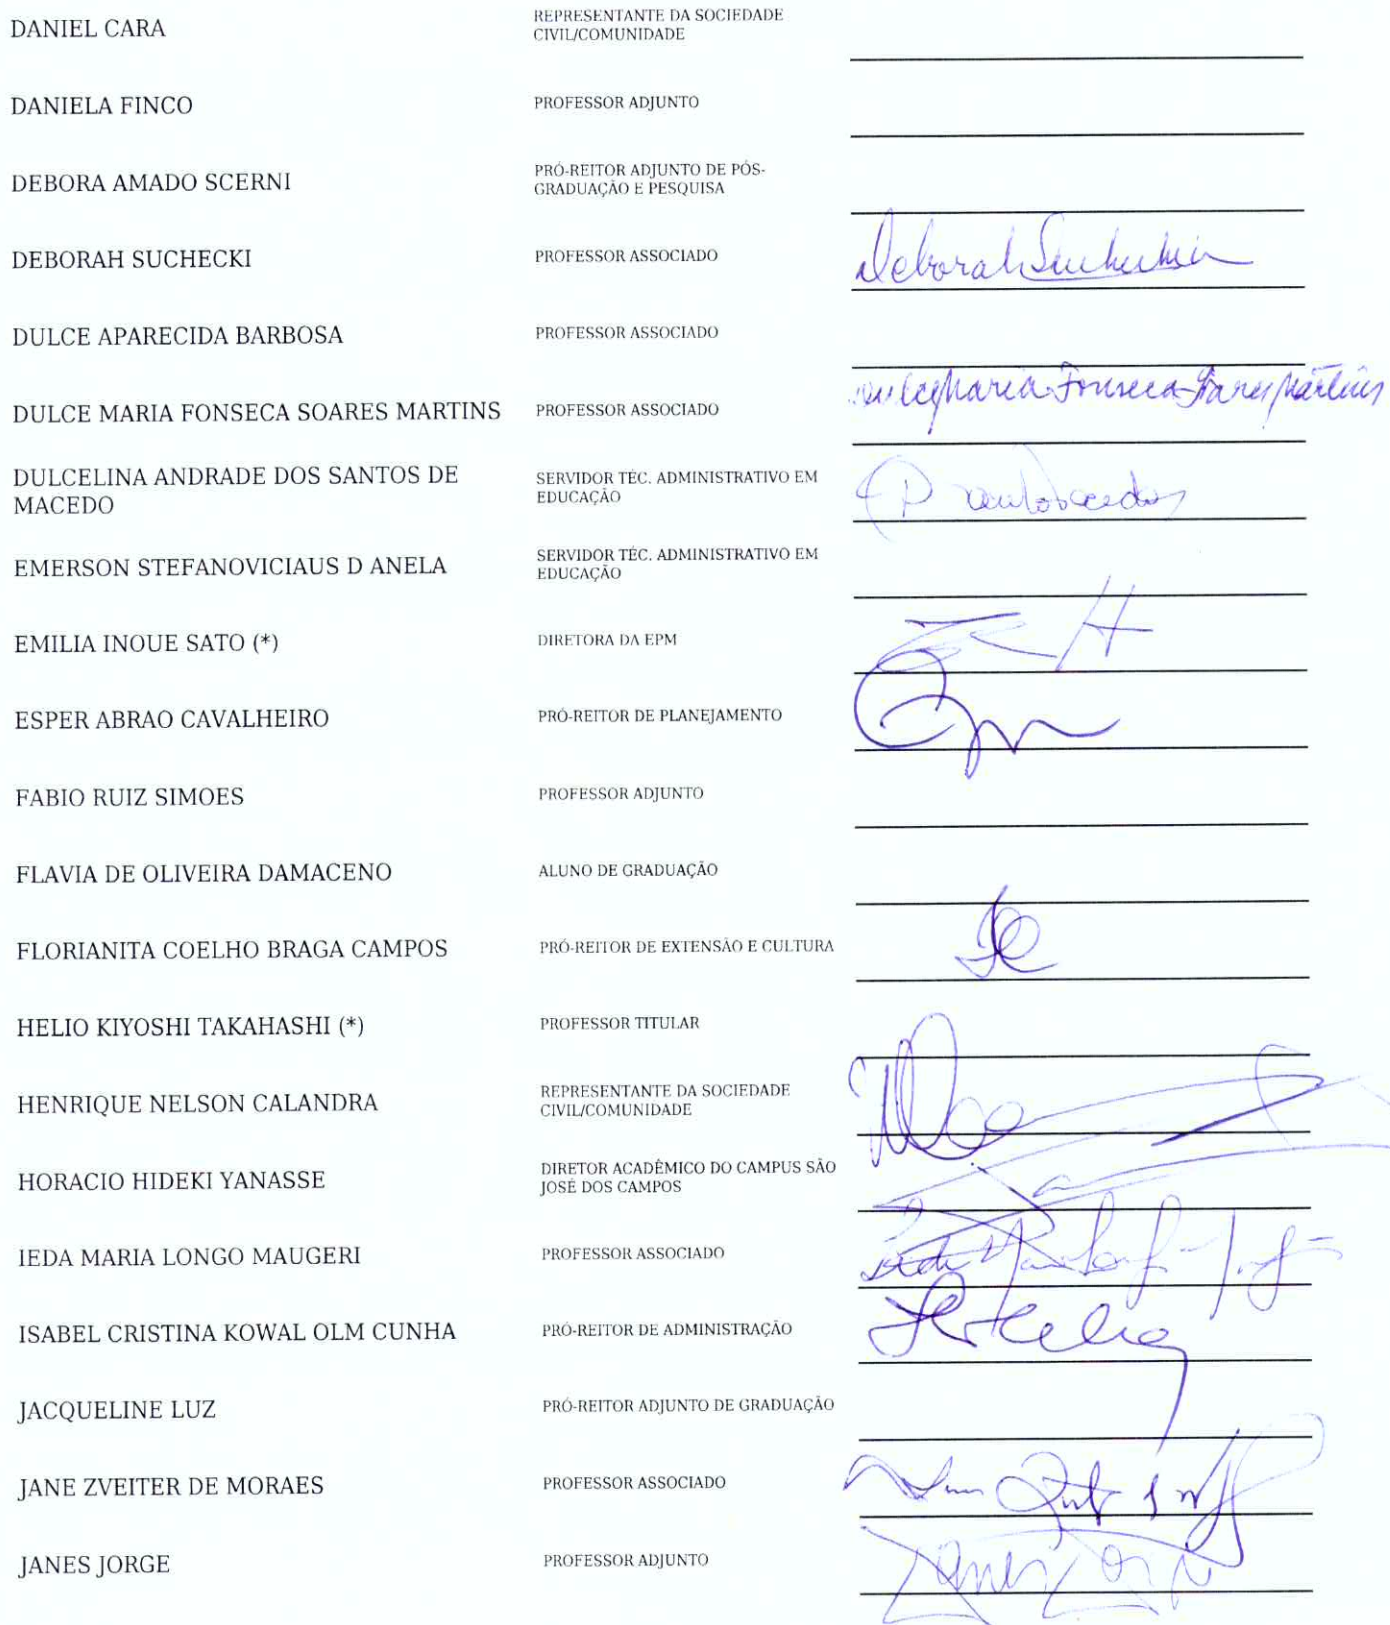 DANIEL CARA REPRESENTANTE DA SOCIEDADE
CIVIL/COMUNIDADE
DANIELA FINCO PROFESSOR ADJUNTO
DEBORA AMADO SCERNI PRÓ-REITOR ADJUNTO DE PÓS-
GRADUAÇÃO E PESQUISA
DEBORAH SUCHECKI PROFESSOR ASSOCIADO Deborah Suchecki
DULCE APARECIDA BARBOSA PROFESSOR ASSOCIADO
DULCE MARIA FONSECA SOARES MARTINS PROFESSOR ASSOCIADO Dulce Maria Fonseca Soares Martins
DULCELINA ANDRADE DOS SANTOS DE SERVIDOR TÉC. ADMINISTRATIVO EM
MACEDO EDUCAÇÃO
EMERSON STEFANOVICIAUS D ANELA SERVIDOR TÉC. ADMINISTRATIVO EM
EDUCAÇÃO
EMILIA INOUE SATO (*) DIRETORA DA EPM
ESPER ABRAO CAVALHEIRO PRÓ-REITOR DE PLANEJAMENTO
FABIO RUIZ SIMOES PROFESSOR ADJUNTO
FLAVIA DE OLIVEIRA DAMACENO ALUNO DE GRADUAÇÃO
FLORIANITA COELHO BRAGA CAMPOS PRÓ-REITOR DE EXTENSÃO E CULTURA
HELIO KIYOSHI TAKAHASHI (*) PROFESSOR TITULAR
HENRIQUE NELSON CALANDRA REPRESENTANTE DA SOCIEDADE
CIVIL/COMUNIDADE
HORACIO HIDEKI YANASSE DIRETOR ACADÊMICO DO CAMPUS SÃO
JOSÉ DOS CAMPOS
IEDA MARIA LONGO MAUGERI PROFESSOR ASSOCIADO
ISABEL CRISTINA KOWAL OLM CUNHA PRÓ-REITOR DE ADMINISTRAÇÃO
JACQUELINE LUZ PRÓ-REITOR ADJUNTO DE GRADUAÇÃO
JANE ZVEITER DE MORAES PROFESSOR ASSOCIADO
JANES JORGE PROFESSOR ADJUNTO Janes Jorge